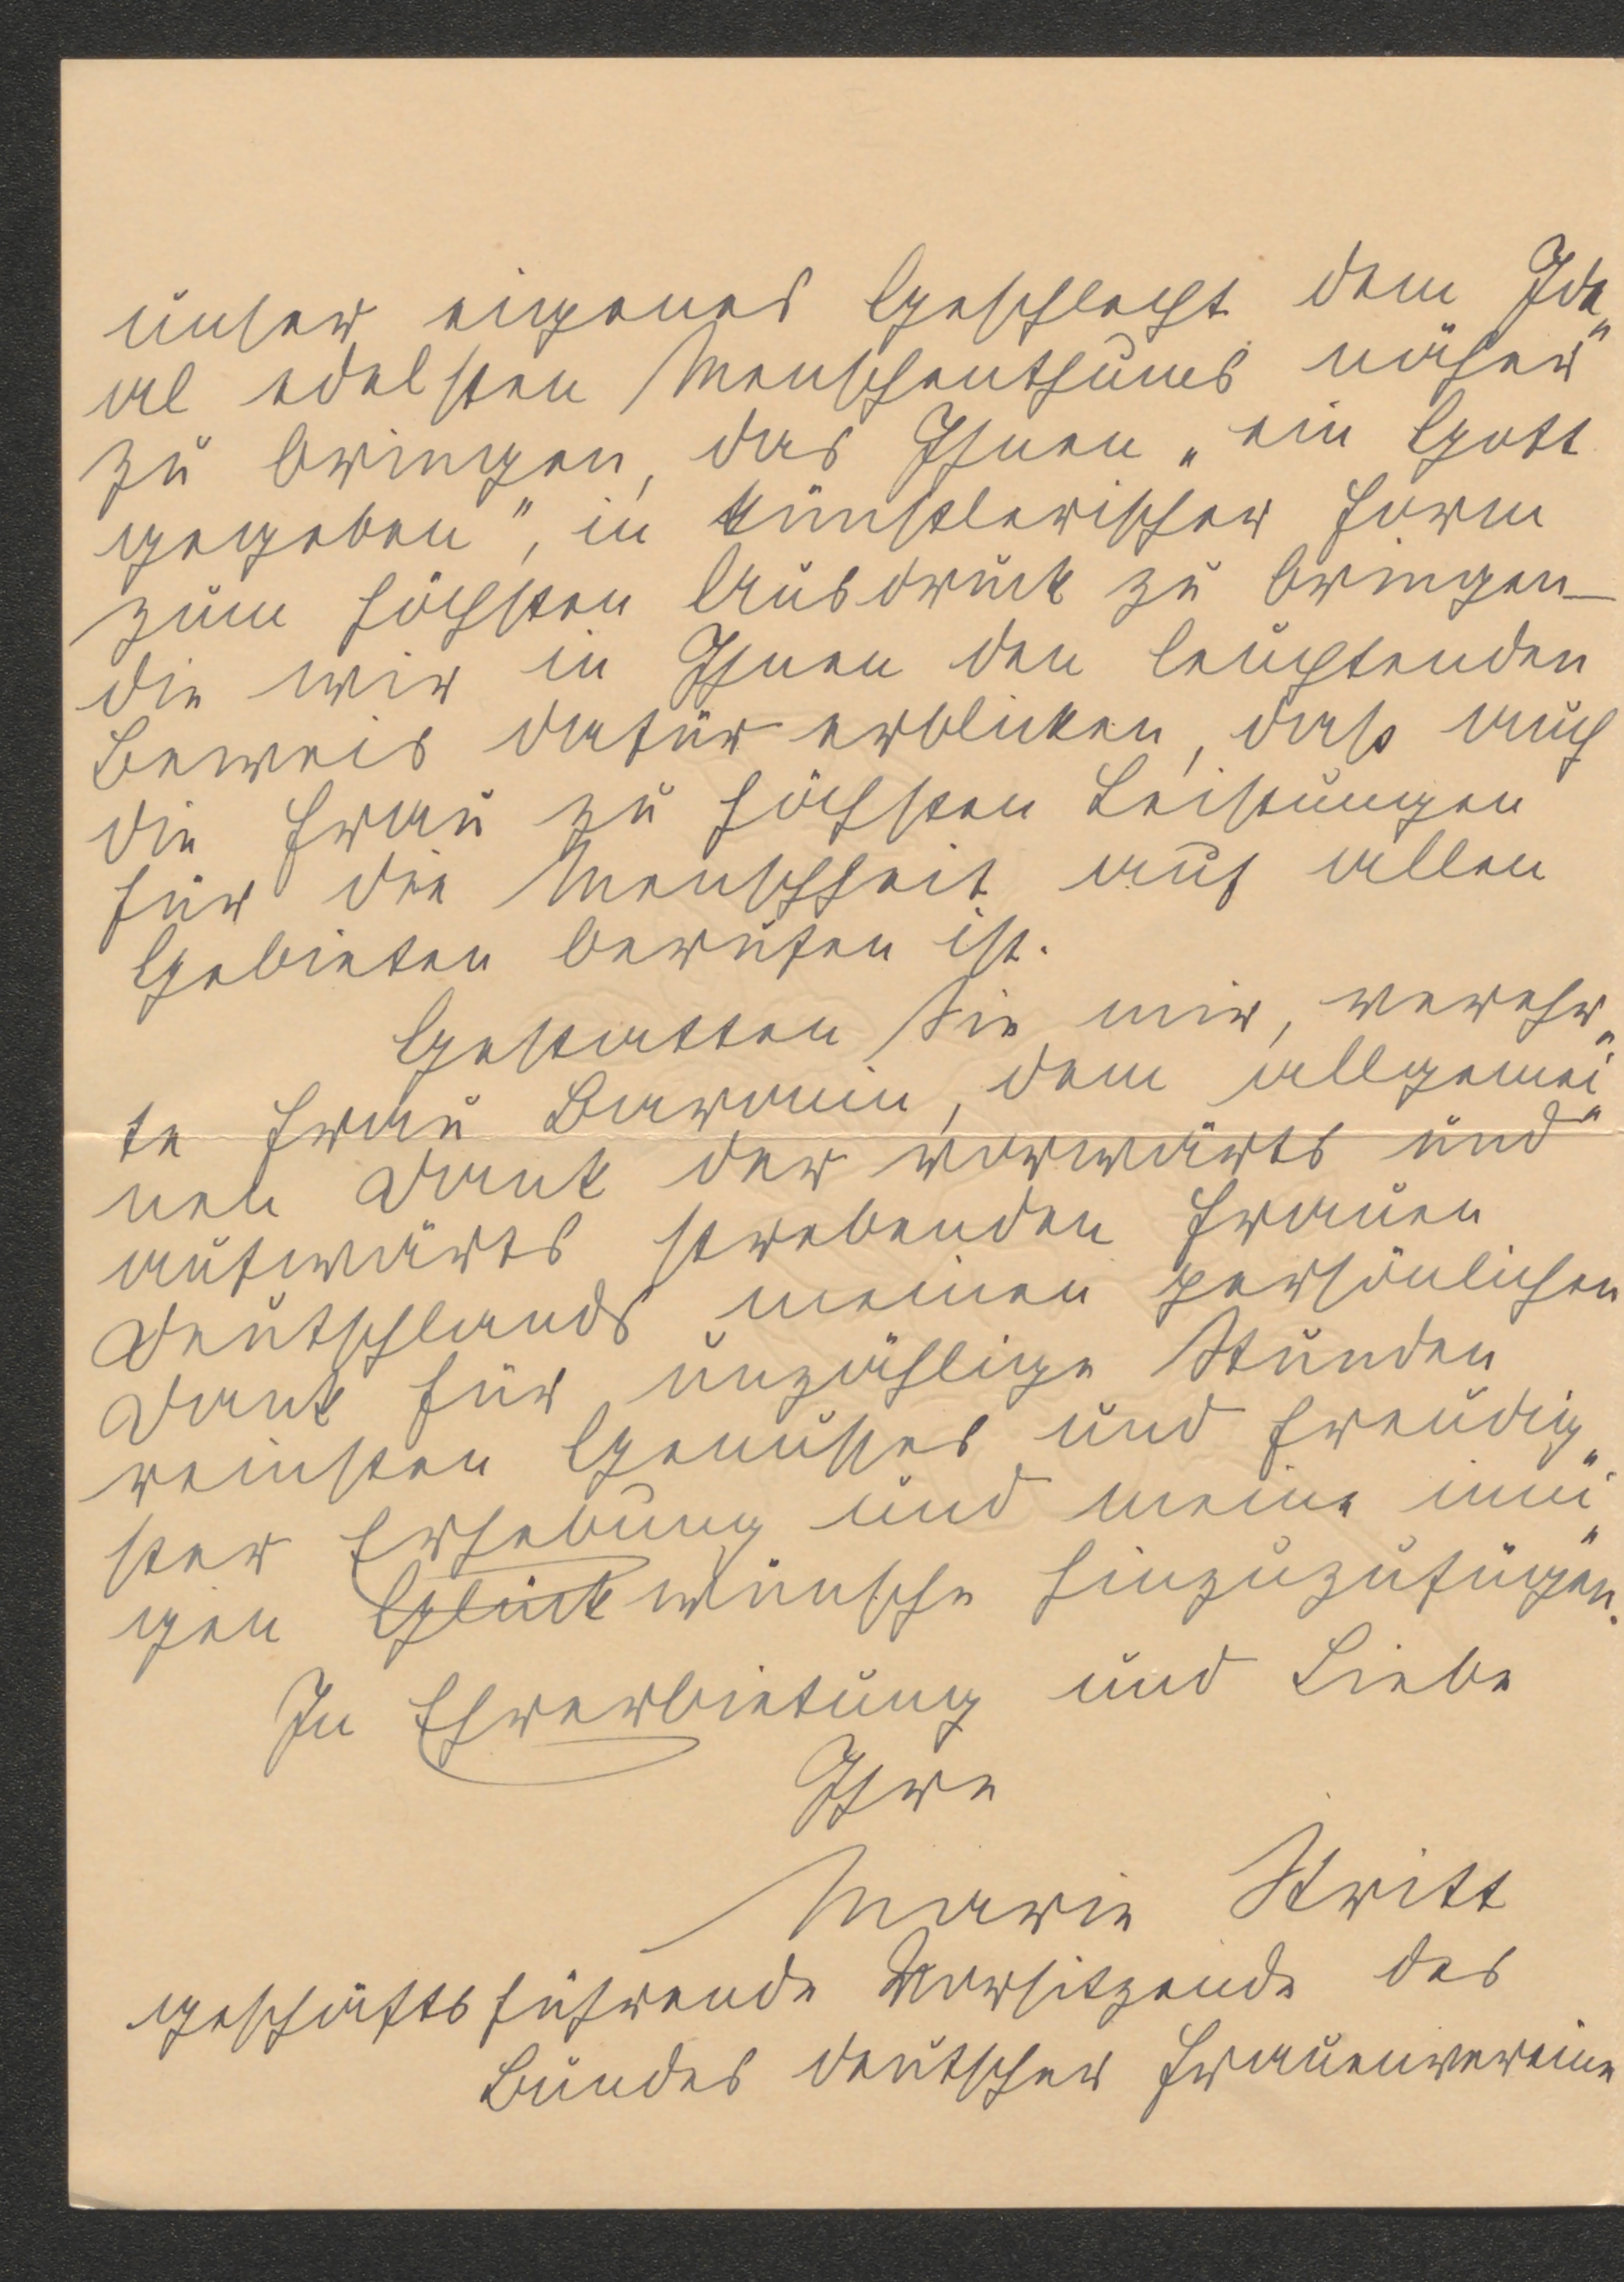 unser eigenes Geschlecht dem Ide„
al edelsten Menschenthums näher
zu bringen, das Ihnen „ein Gott
gegeben", in künstlerischer Form
zum höchsten Ausdruck zu bringen –
die wir in Ihnen den leuchtenden
Beweis dafür erblicken, dass auch
die Frau zu höchsten Leistungen
für die Menschheit auf allen
Gebieten berufen ist.
Gestatten Sie mir, verehr„
te Frau Baronin, dem allgemei„
nen Dank der vorwärts und
aufwärts strebenden Frauen
Deutschlands meinen persönlichen
Dank für unzählige Stunden
reinsten Genusses und freudig„
ster Erhebung und meine inni„
gen Glückwünsche hinzuzufügen.
In Ehrerbietung und Liebe
Ihre
Marie Stritt
geschäftsführende Vorsitzende des
Bundes deutscher Frauenvereine